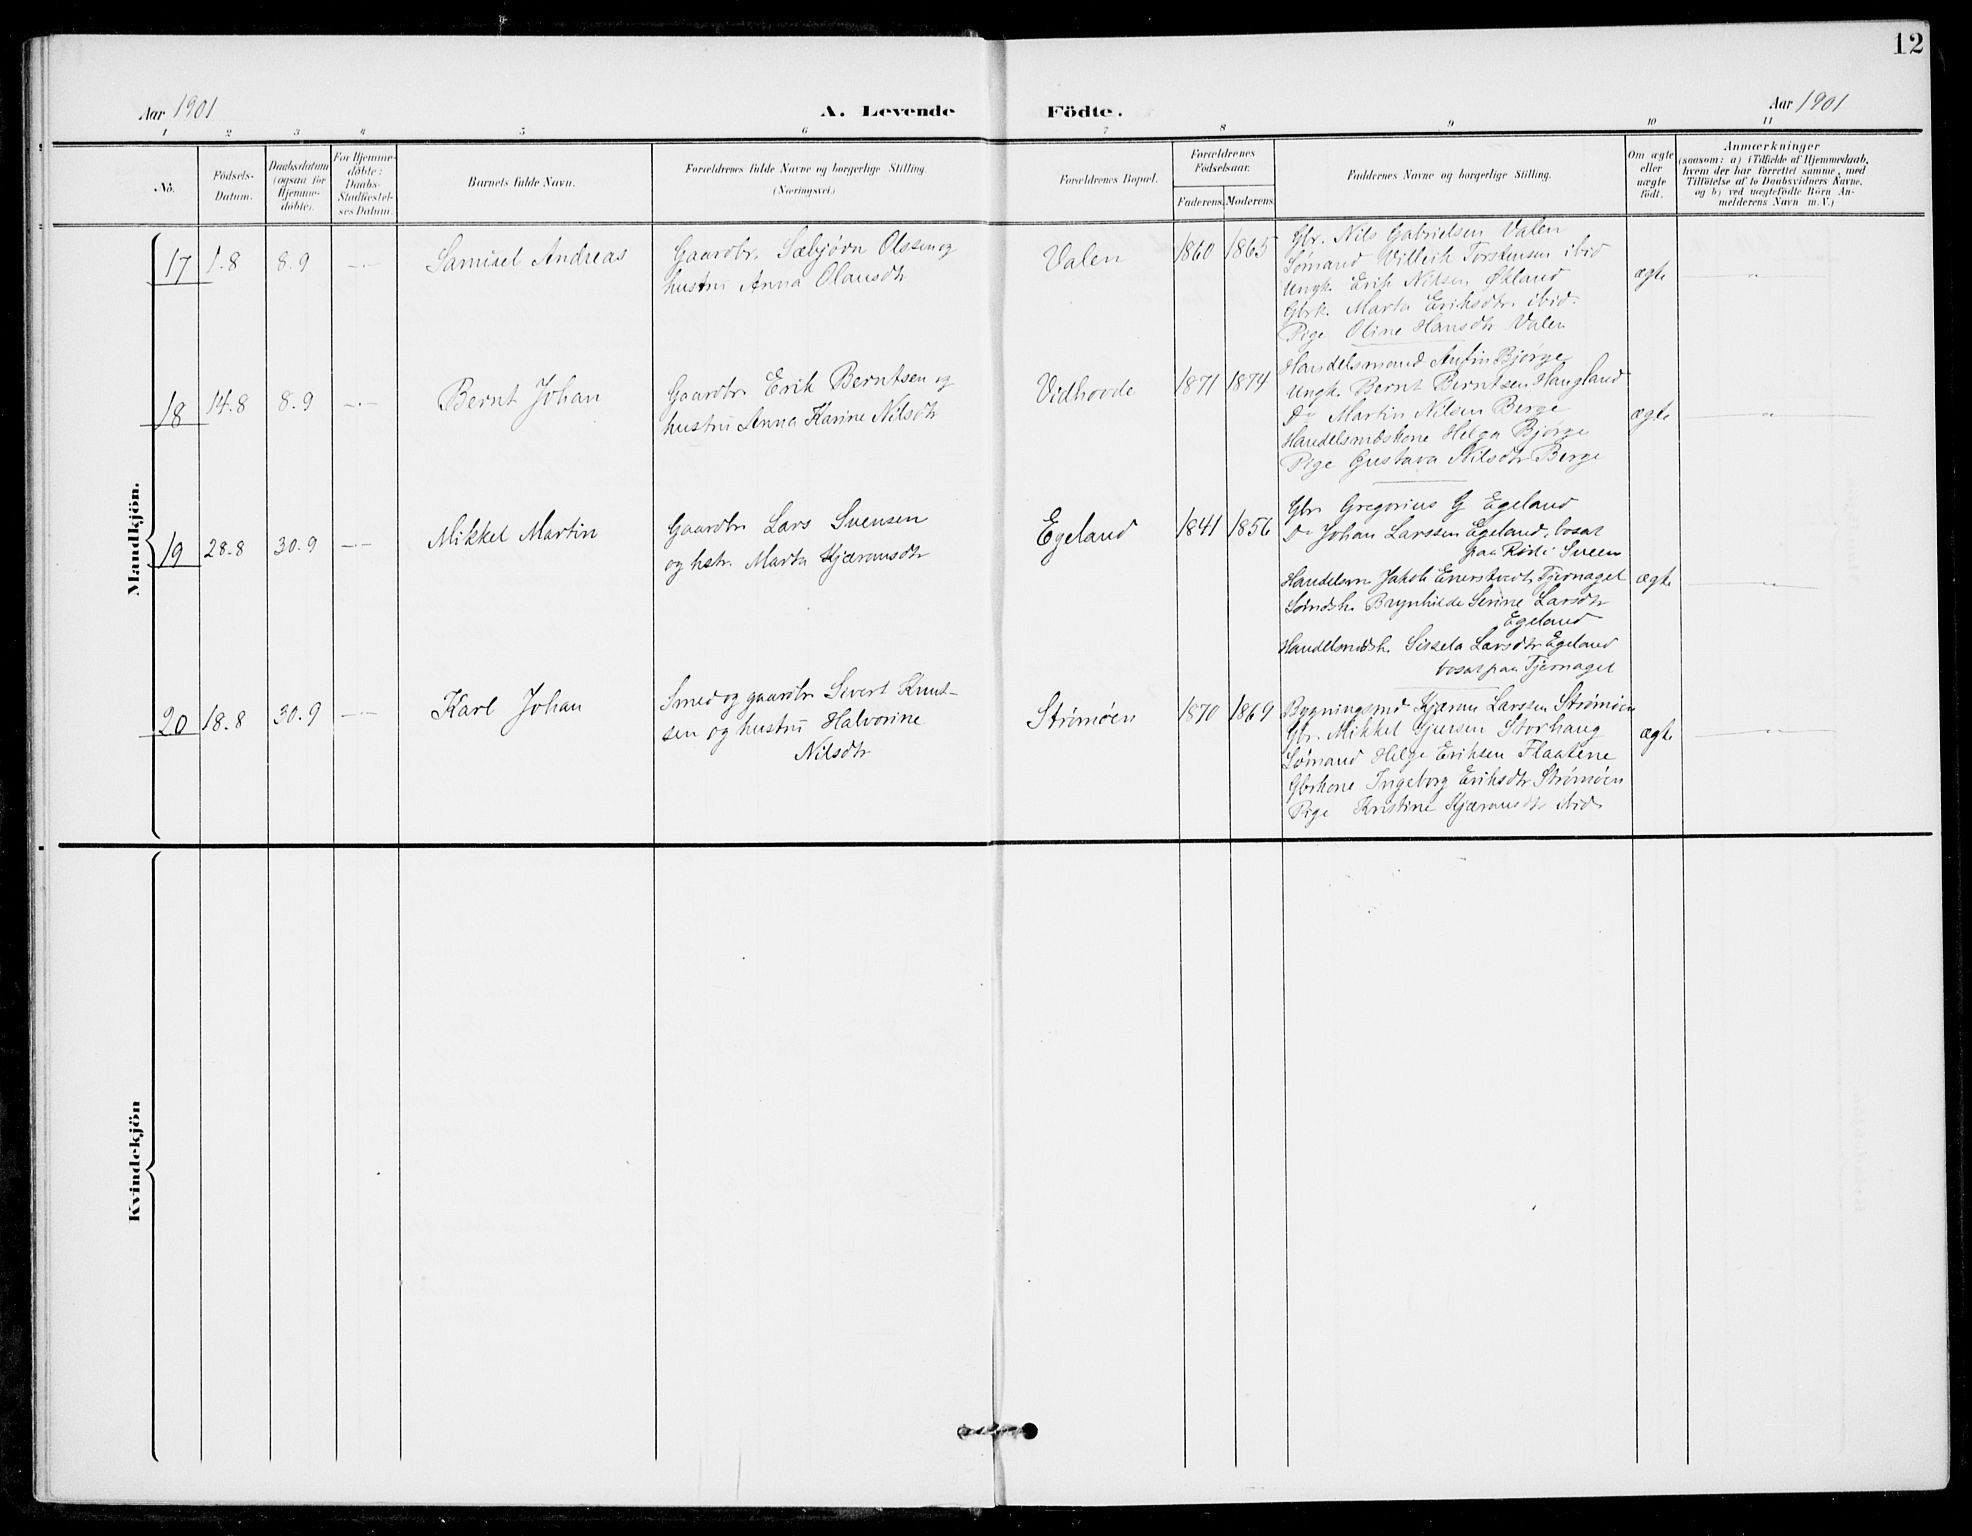 12
Aar 1901
A. Levende Födte.
Aar 1901
1 2 3 4 5 6 7 8 9 10 11
No.
Födsels-
Datum.
Daabsdatum
(ogsaa for
Hjemme-
döbte).
For Hjemme-
döbte:
Daabs-
Stadfæstel-
ses Datum.
Barnets fulde Navn.
Forældrenes fulde Navne og borgerlige Stilling
(Næringsvei.)
Forældrenes Bopæl.
Forældrenes
Födselsaar.
Faderens. Moderens.
Faddernes Navne og borgerlige Stilling.
Om ægte
eller
uægte
födt.
Anmærkninger
(saasom: a) i Tilfælde af Hjemmedaab,
hvem der har forrettet samme, med
Tilföielse af to Daabsvidners Navne,
og b) ved uægtefödte Börn An-
melderens Navn m. V.)
Mandkjön.
17
1.8
8.9
—·—
Samuel Andreas
Gaardbr. Sæbjørn Olssen og
hustru Anna Olausdtr
Valen
1860
1865
Gbr. Nils Gabrielsen Valen
Sømand Villeik Torstensen ibid
Ungk. Erik Nilsen Økland
Gbrk. Marta Eriksdtr ibid.
Pige Oline Hansdtr Valen
ægte
— " —
18
14.8
8.9
—·—
Bernt Johan
Gaardbr Erik Berntsen og
hustru Anna Karine Nilsdtr
Vidhovde
1871
1874
Handelsmand Anfin Bjørge
Ungk. Bernt Berntsen Haugland
Do Martin Nilsen Berge
Handelsmdskone Helga Bjørge
Pige Gustava Nilsdtr Berge
ægte
— " —
19
28.8
30.9
—·—
Mikkel Martin
Gaardbr Lars Svensen
og hstr. Marta Kjæransdtr
Egeland
1841
1856
Gbr Gregorius G Egeland
Do Johan Larssen Egeland, bosat
paa Sveen
Handelsm Jakob Enerstvedt, Tjernaget
Sømdsk. Brynhilde Serine Larsdtr
Egeland
Handelsmdsk. Sissela Larsdtr Egeland
bosat paa Tjernaget
ægte
— " —
20
18.8
30.9
—·—
Karl Johan
Smed og gaardbr Sivert Knut-
sen og hustru Halvorine
Nilsdtr
Strømøen
1870
1869
Bygningsmd Kjæran Larssen Strømøen
Gbr. Mikkel Gjersen Storhaug
Sømand Helge Eriksen Flaatene
Gbrkone Ingeborg Eriksdtr Strømøen
Pige Kristine Kjæransdtr ibid
ægte
— " —
Kvindekjön